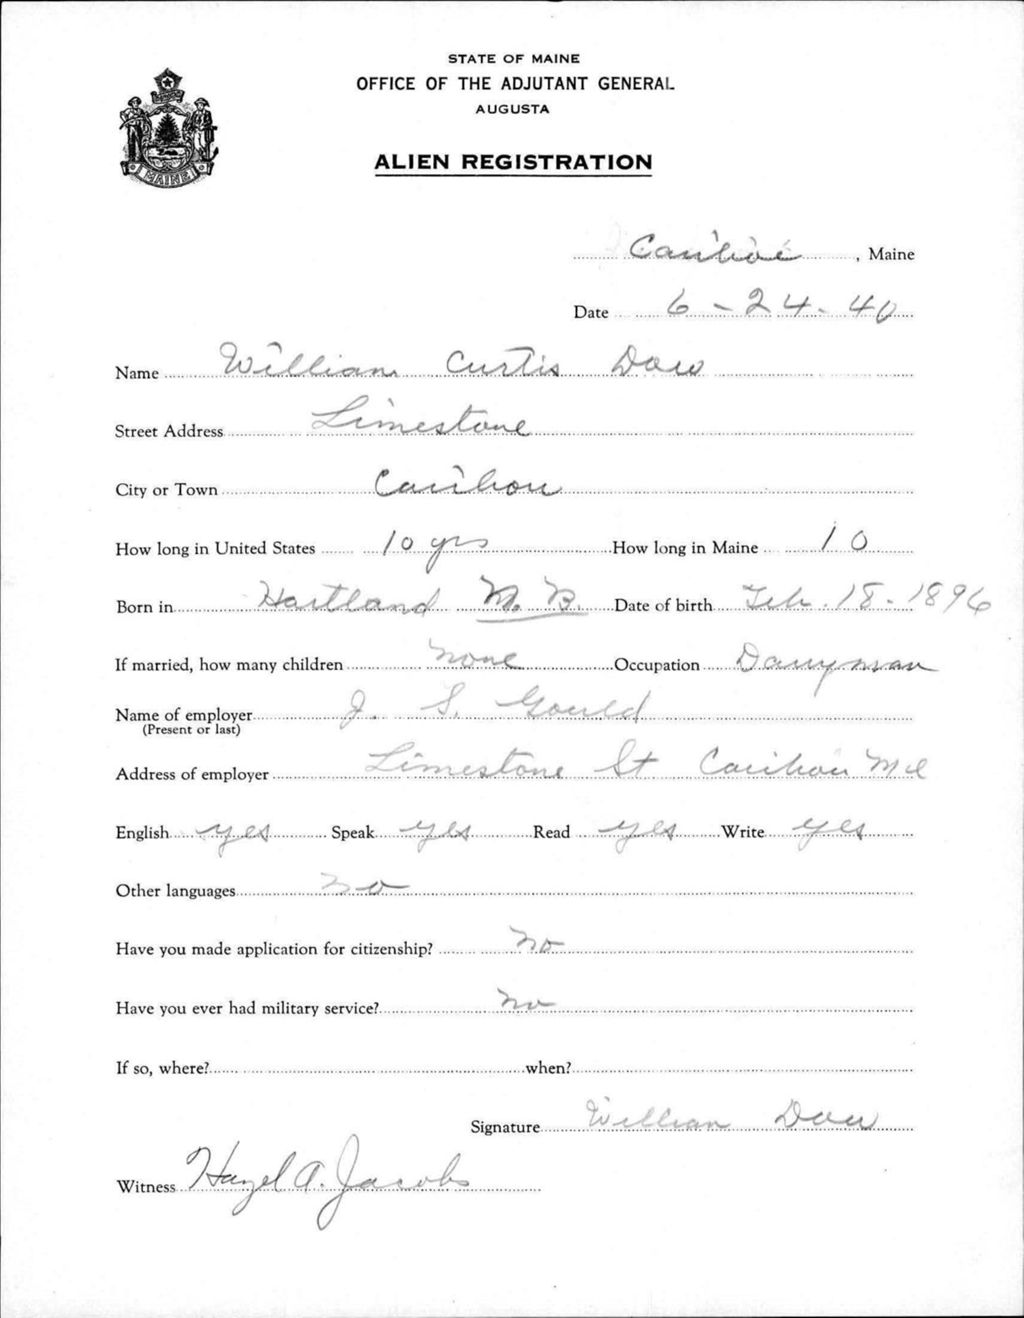 STATE OF MAINE
OFFICE OF THE ADJUTANT GENERAL
AUGUSTA
MAINE
ALIEN REGISTRATION
Caribou, Maine
Date 6-24-40
Name William Curtis Dow
Street Address Limestone
City or Town Caribou
How long in United States 10 yrs How long in Maine 10
Born in Hartland N. B. Date of birth Feb. 18-1896
If married, how many children none Occupation Dairyman
Name of employer J. S. Gould
(Present or last)
Address of employer Limestone St Caribou Me
English yes Speak yes Read yes Write yes
Other languages no
Have you made application for citizenship? no
Have you ever had military service? no
If so, where? when?
Signature William Dow
Witness Hazel A. Jacobs